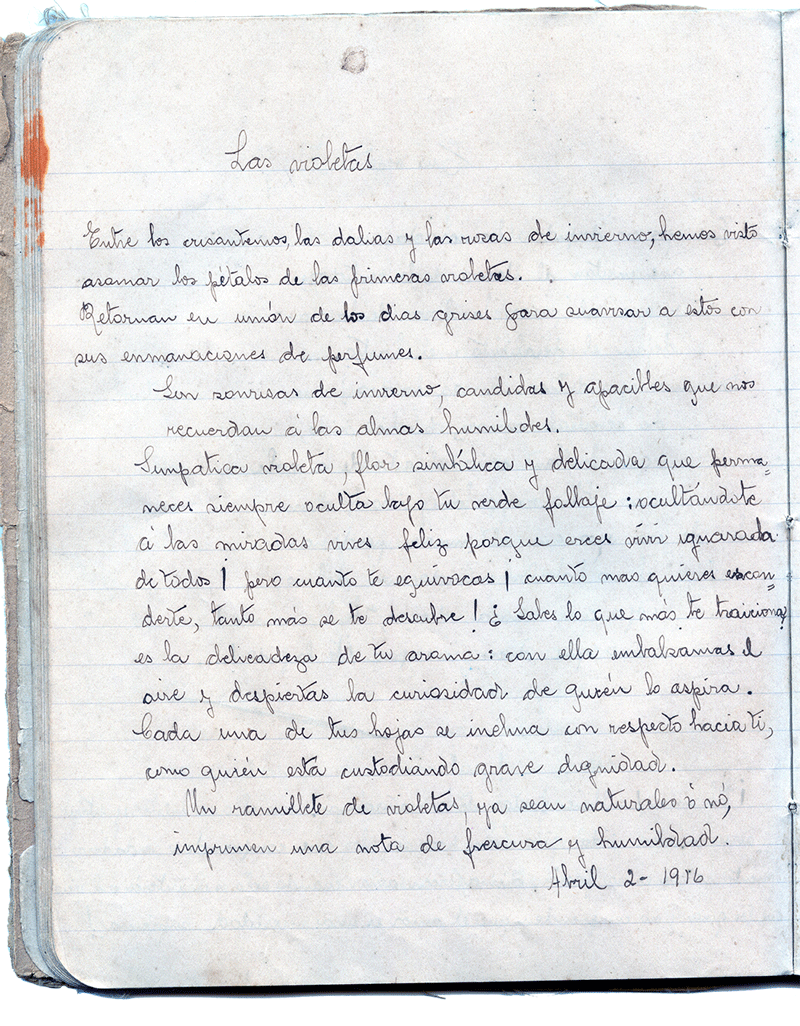 Las violetas
Entre los crisantemos, las dalias y las rosas de invierno, hemos visto
asomar los pétalos de las primeras violetas.
Retornan en unión de los dias grises para suavisar a estos con
sus enmanaciones de perfumes.
Son sonrisas de invierno, candidas y apacibles que nos
recuerdan á las almas humildes.
Simpatica violeta, flor simbólica y delicada que perma=
neces siempre oculta bajo tu verde follaje: ocultándote
á las miradas vives feliz porque crees vivir ignorada
de todos! pero cuanto te equivocas¡ cuanto mas quieres escon=
derte, tanto más se te descubre! ¿Sabes lo que más te traiciona?
es la delicadeza de tu aroma: con ella embalsamas el
aire y despiertas la curiosidad de quién lo aspira.
Cada una de tus hojas se inclina con respecto hacia ti,
como quién esta custodiando grave dignidad.
Un ramillete de violetas, ya sean naturales ó nó,
imprimen una nota de frescura y humildad.
Abril 2-1916